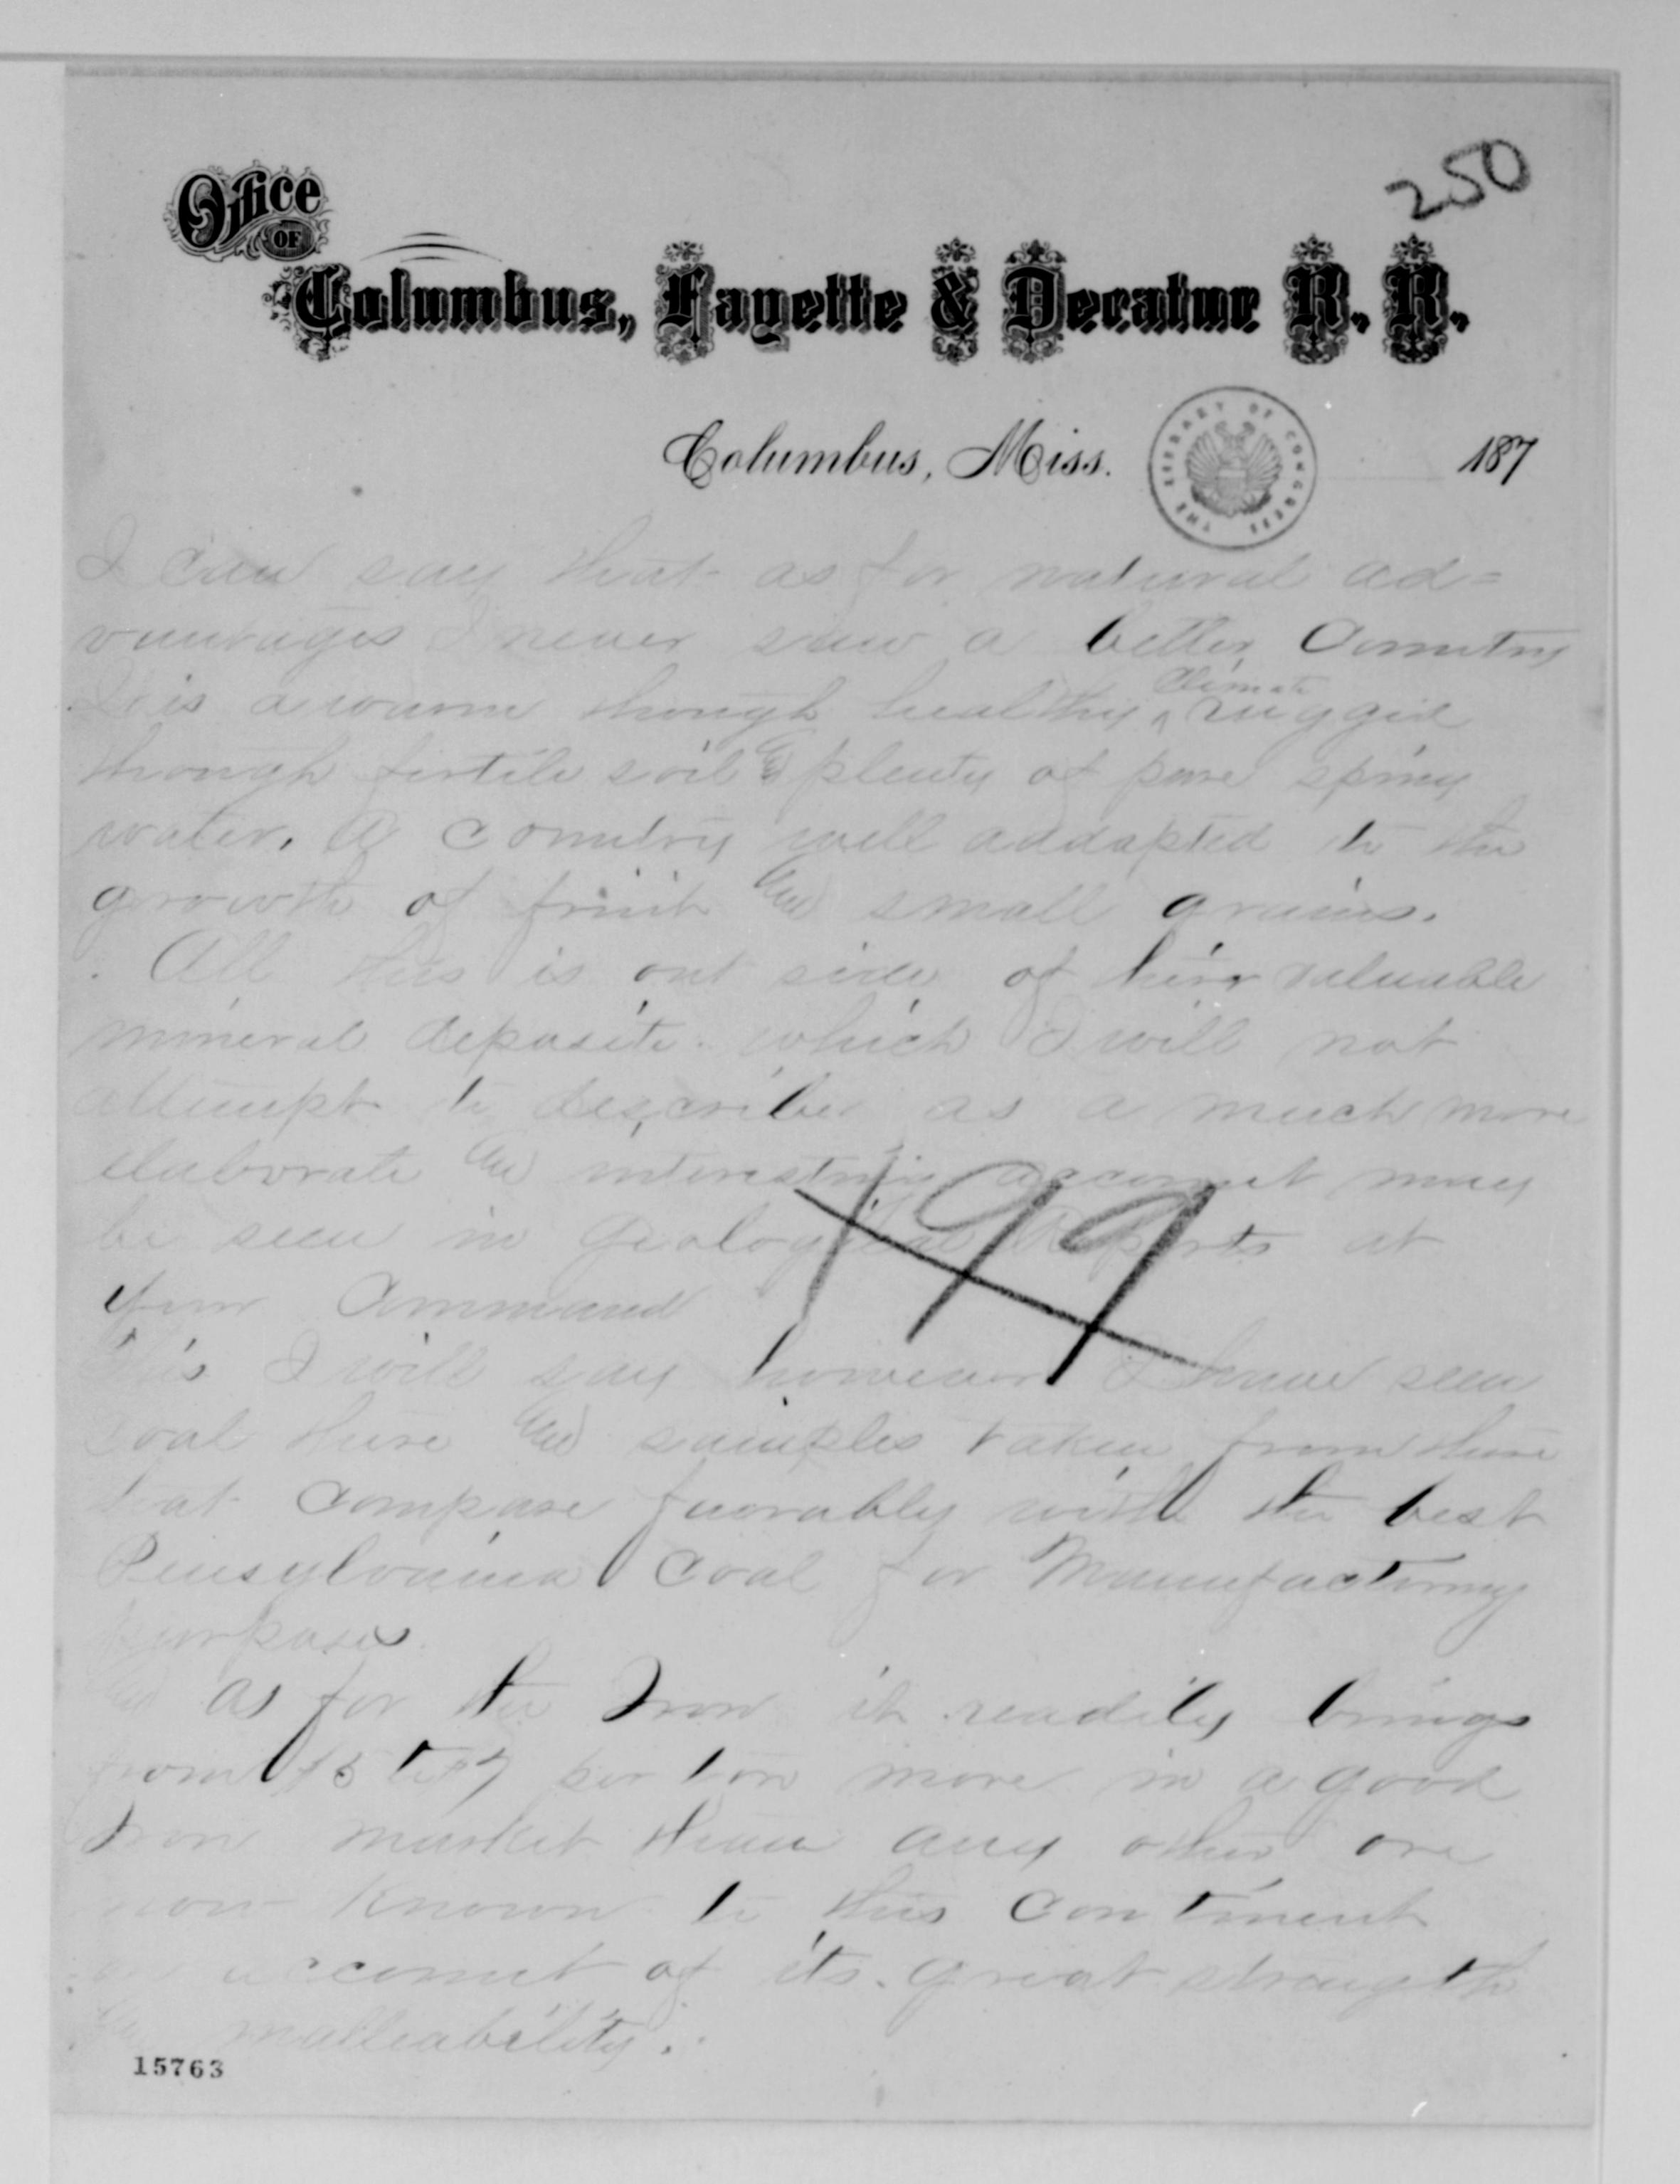 250
Office
OF
Columbus, Fayette & Decatur R. R.
Columbus, Miss. 187
THE LIBRARY OF CONGRESS
I can say that as for natural ad=
vantages I never saw a better Country
It is a warm though healthy ^ Climate ruggid
though fertile soil & plenty of pure spring
water. A country well addapted to the
growth of fruit & small grains.
All this is out side of her valuable
mineral deposits. which I will not
attempt to describe as a much more
elaborate & interesting account may
be seen in Geological Reports at
your Command
199
this I will say however I have seen
coal there & samples taken from there
that compare favorably with the best
Pensylvania Coal for Manufactoring
purposes
& as for the Iron it readily brings
from $5 to $7 per ton more in a good
Iron market than any other ore
now Known to this Continent
on account of its great strength
& malleability.
15763